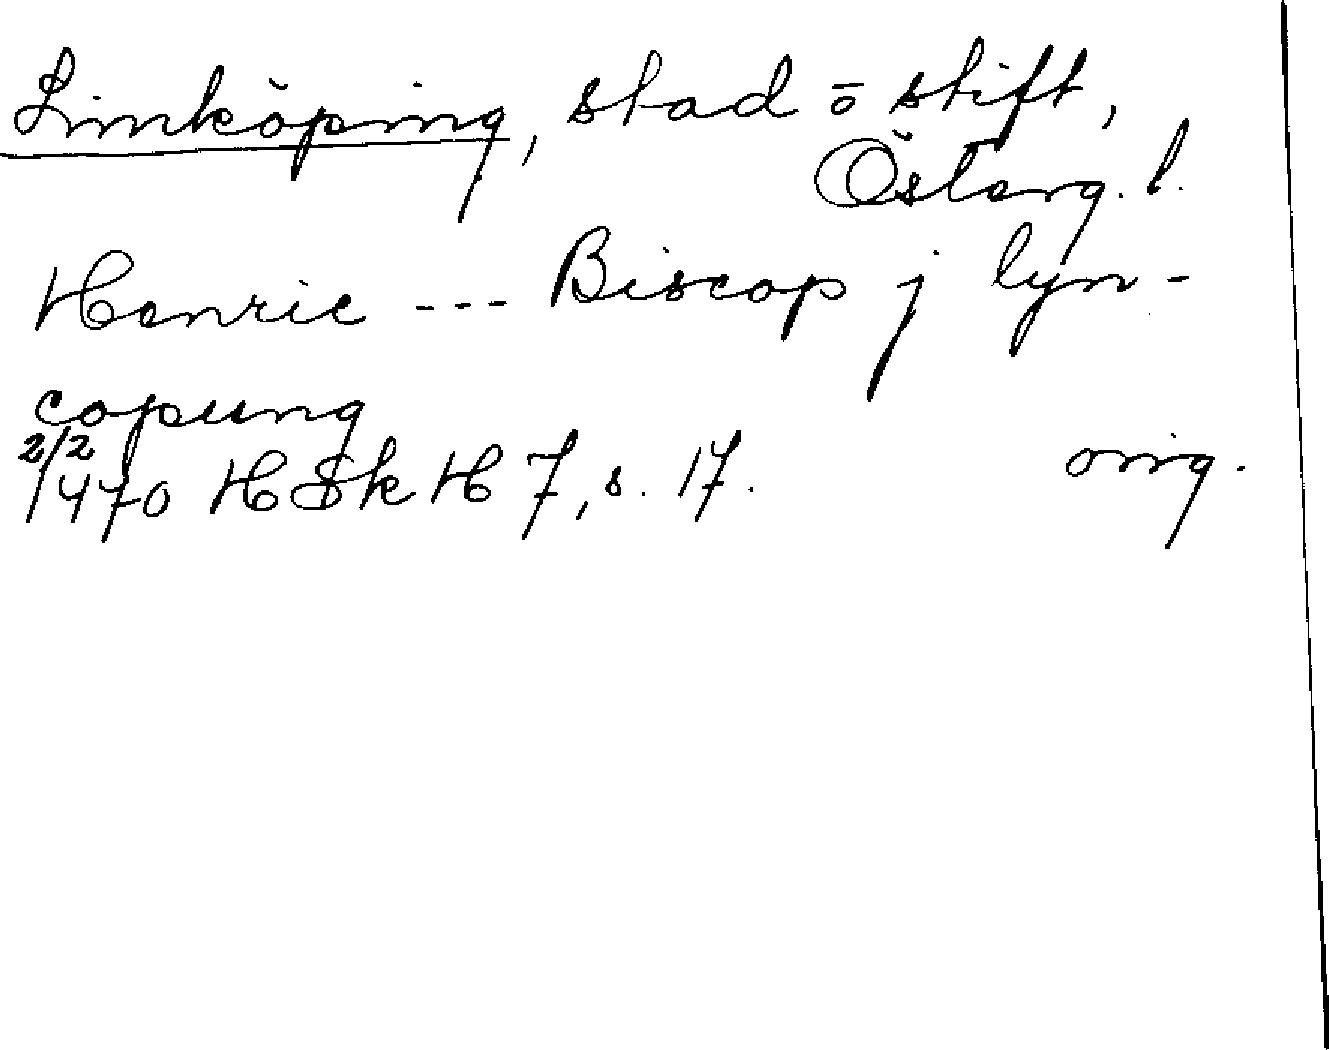 Linköping, stad o stift,
Österg. l.
Henric --- Biscop j lyn-
copung
2/2
1470 HSkH 7, s. 17. orig.